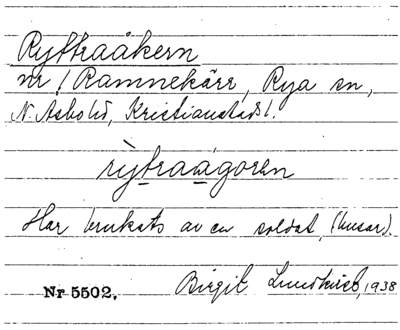 Ryttraåkern
nr 1 Ramnekärr, Rya sn,
N. Åsbo hd, Kristianstads l.
rỳtraågoren
Har brukats av en soldat, (husar).
Nr 5502. Birgit 1938